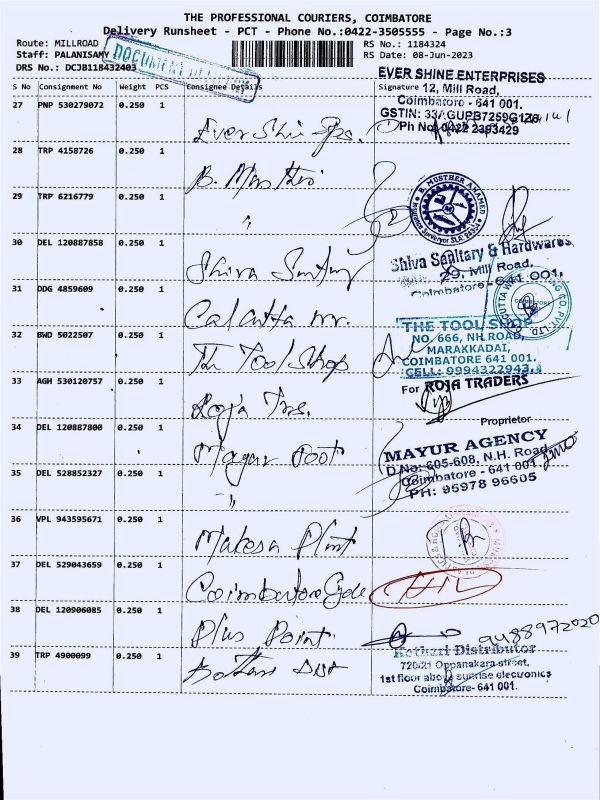 THE PROFESSIONAL COURIERS, COIMBATORE
Delivery Runsheet - PCT - Phone No.:0422-3505555 - Page No.:3
Route: MILLROAD
RS No.: 1184324
Staff: PALANISAMY
RS Date: 08-Jun-2023
DRS No.: DCJB118432403
DOCUMENT
S No Consignment No Weight PCS Consignee Details Signature
EVER SHINE ENTERPRISES
12, Mill Road,
Coimbatore - 641 001.
GSTIN: 33
Ph No. 0422 2393429
27 PNP 530279072 0.250 1
28 TRP 4158726 0.250 1 B.
29 TRP 6216779 0.250 1 "
B. MUSTHER AHAMED
30 DEL 120887858 0.250 1 Shiva
Shiva Sanitary & Hardwares
Mill Road,
Coimbatore - 641 001.
31 DDG 4859609 0.250 1 Calcutta
32 BWD 5022507 0.250 1 The Tool Shop
THE TOOL SHOP
NO. 666, NH ROAD,
MARAKKADAI,
COIMBATORE 641 001.
CELL: 9994322943
33 AGH 530120757 0.250 1 Roja Trs.
For ROJA TRADERS
Proprietor
34 DEL 120887800 0.250 1
MAYUR AGENCY
D.No: 605-608, N.H. Road,
Coimbatore - 641 001
PH: 95978 96605
35 DEL 528852327 0.250 1 "
36 VPL 943595671 0.250 1
37 DEL 529043659 0.250 1 Coimbatore Cycle
38 DEL 120906085 0.250 1 Plus Point
9488972020
39 TRP 4900099 0.250 1
Kothari Distributor
720/21 Oppanakara street,
1st floor above sunrise electronics
Coimbatore- 641 001.